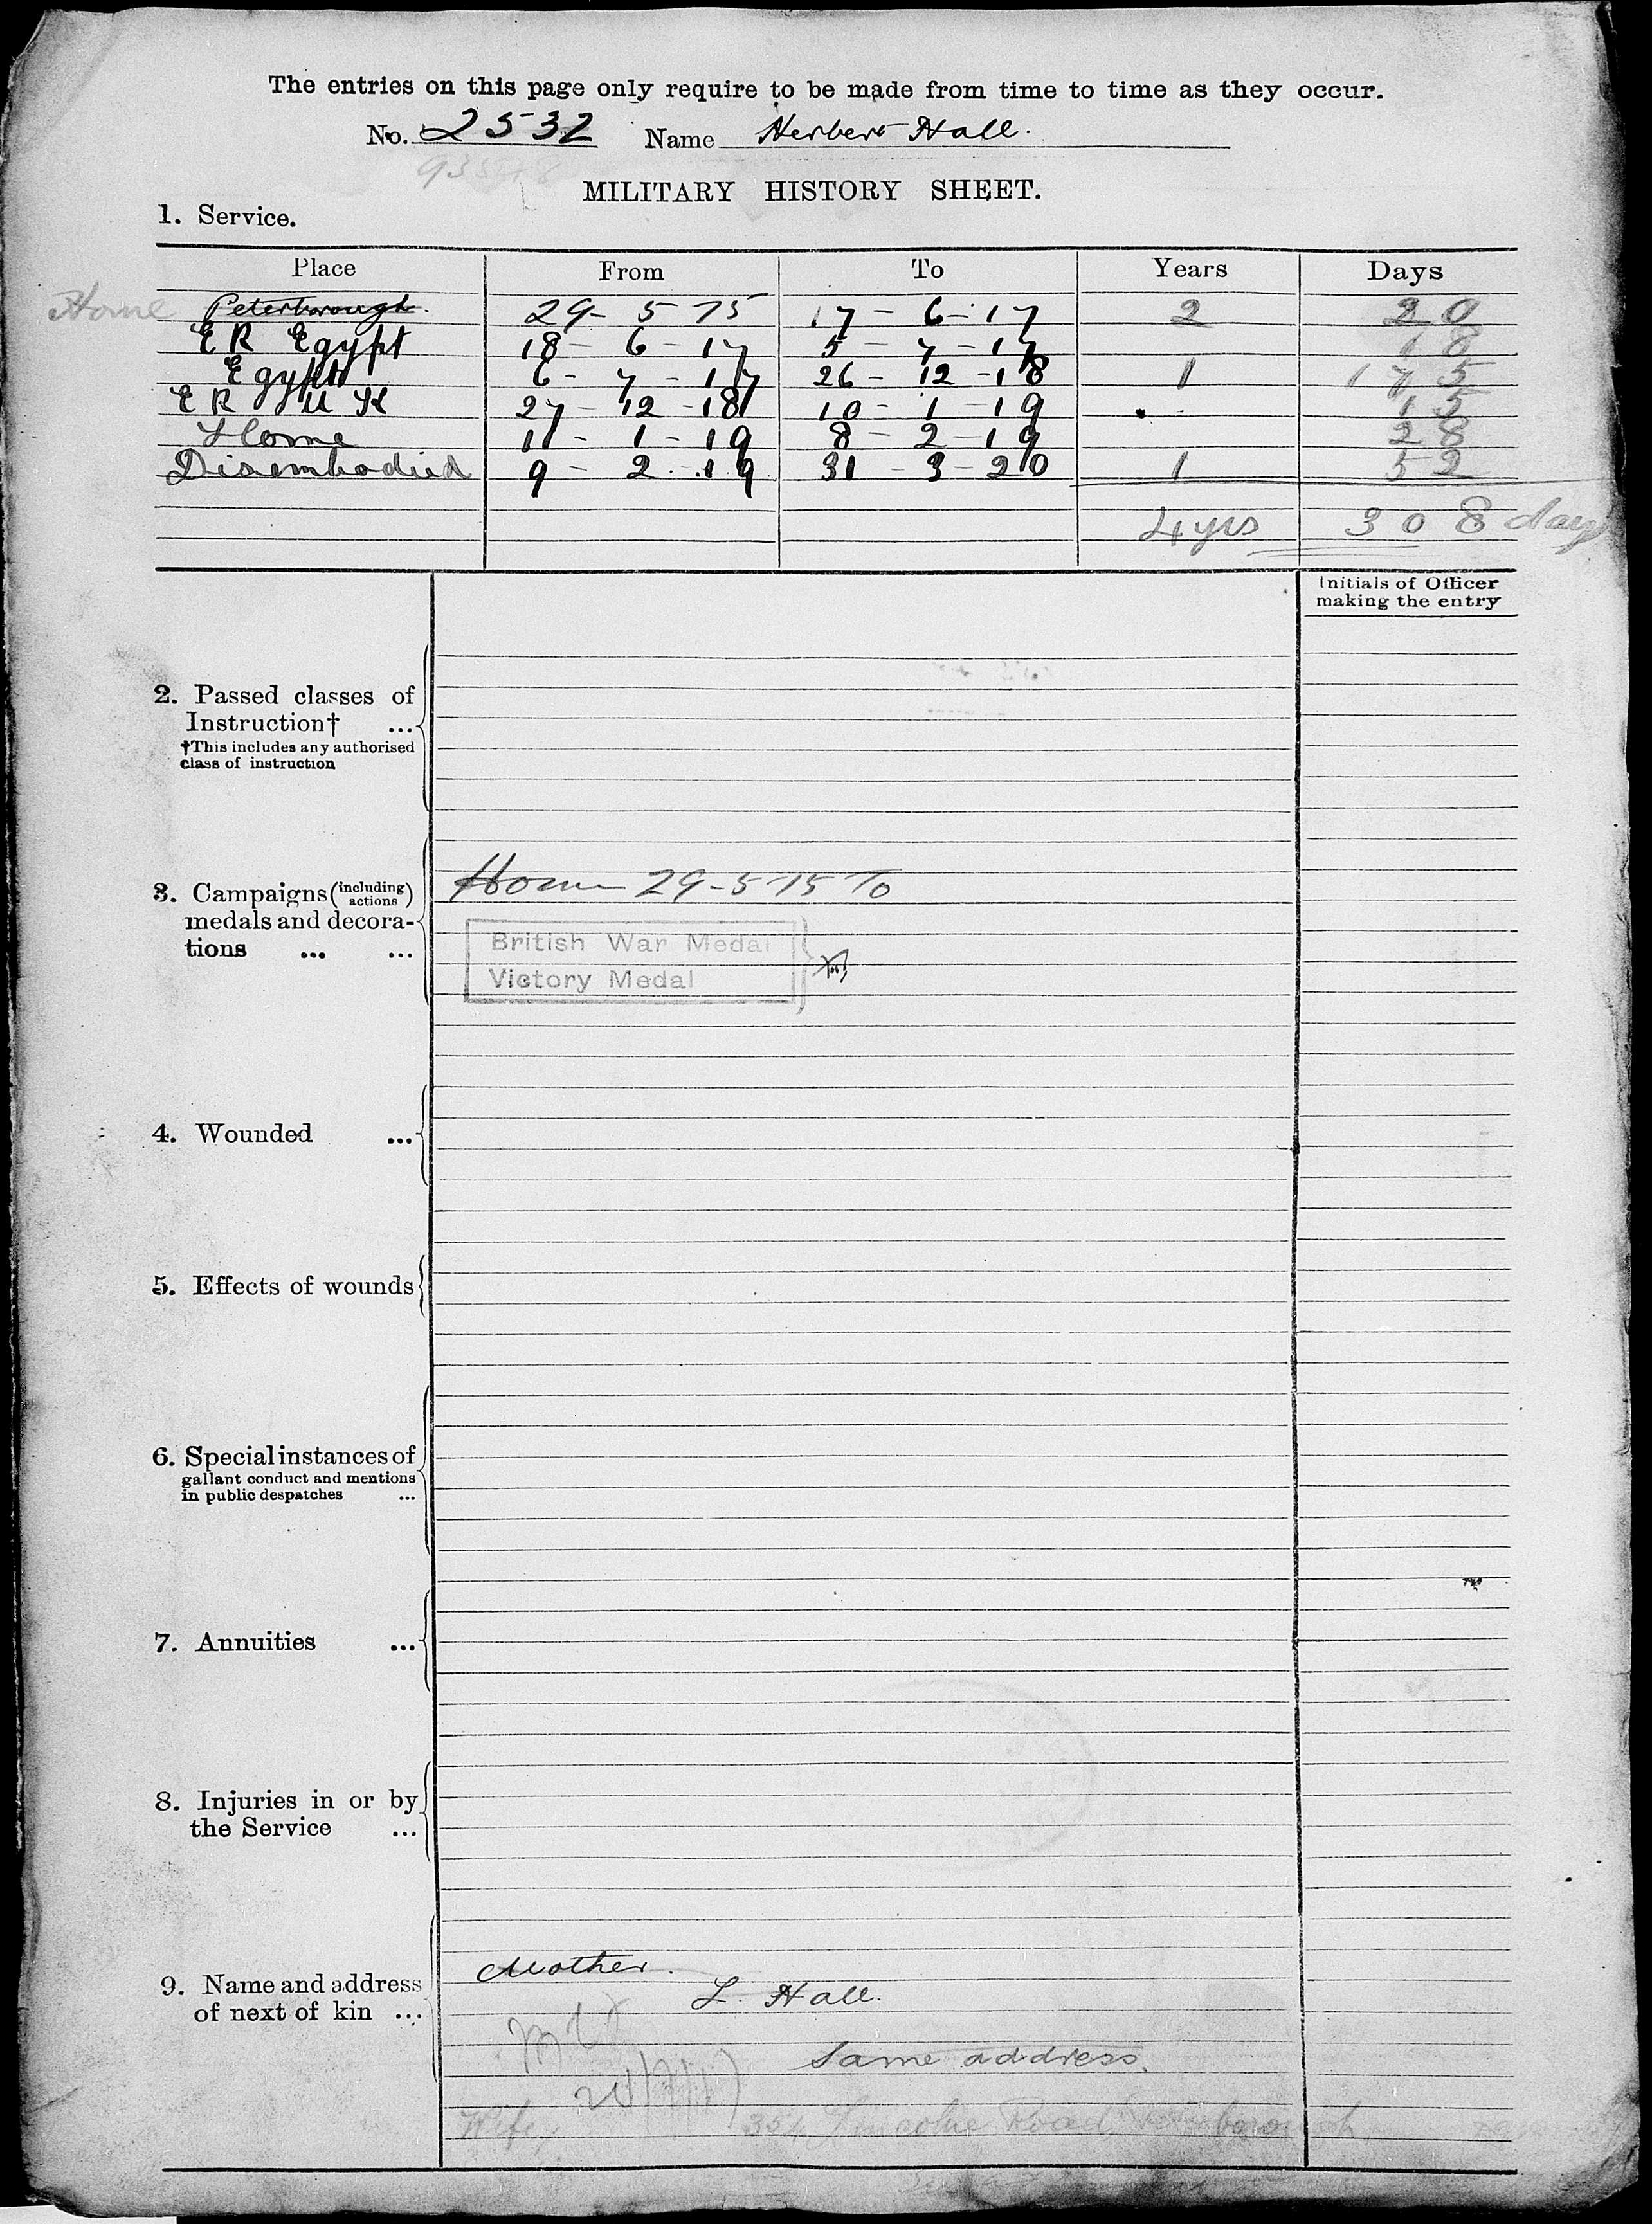 The entries on this page only require to be made from time to time as they occur.
No. 2532 Name Herbert Hall.
MILITARY HISTORY SHEET.
1. Service.
Place From To Years Days
Home Peterborough. 29- 5 -15 17 - 6 - 17 2 20
E R Egypt 18 - 6 - 17 5 - 7 - 17 18
Egypt 6 - 7 - 17 26 - 12 - 18 1 175
E R U K 27 - 12 - 18 10 - 1 - 19 15
Home 11 - 1 - 19 8 - 2 - 19 28
Disembodied 9 - 2 - 19 31 - 3 - 20 1 52
4 yrs 308 days
Initials of Officer
making the entry
2. Passed classes of
Instruction† ...
†This includes any authorised
class of instruction
3. Campaigns (including actions)
medals and decora-
tions ... ...
Home 29-5-15 To
British War Medal
Victory Medal
4. Wounded ...
5. Effects of wounds
6. Special instances of
gallant conduct and mentions
in public despatches ...
7. Annuities ...
8. Injuries in or by
the Service ...
9. Name and address
of next of kin ...
Mother.
L. Hall.
Same address.
Wife, Lincoln Road, Peterborough.